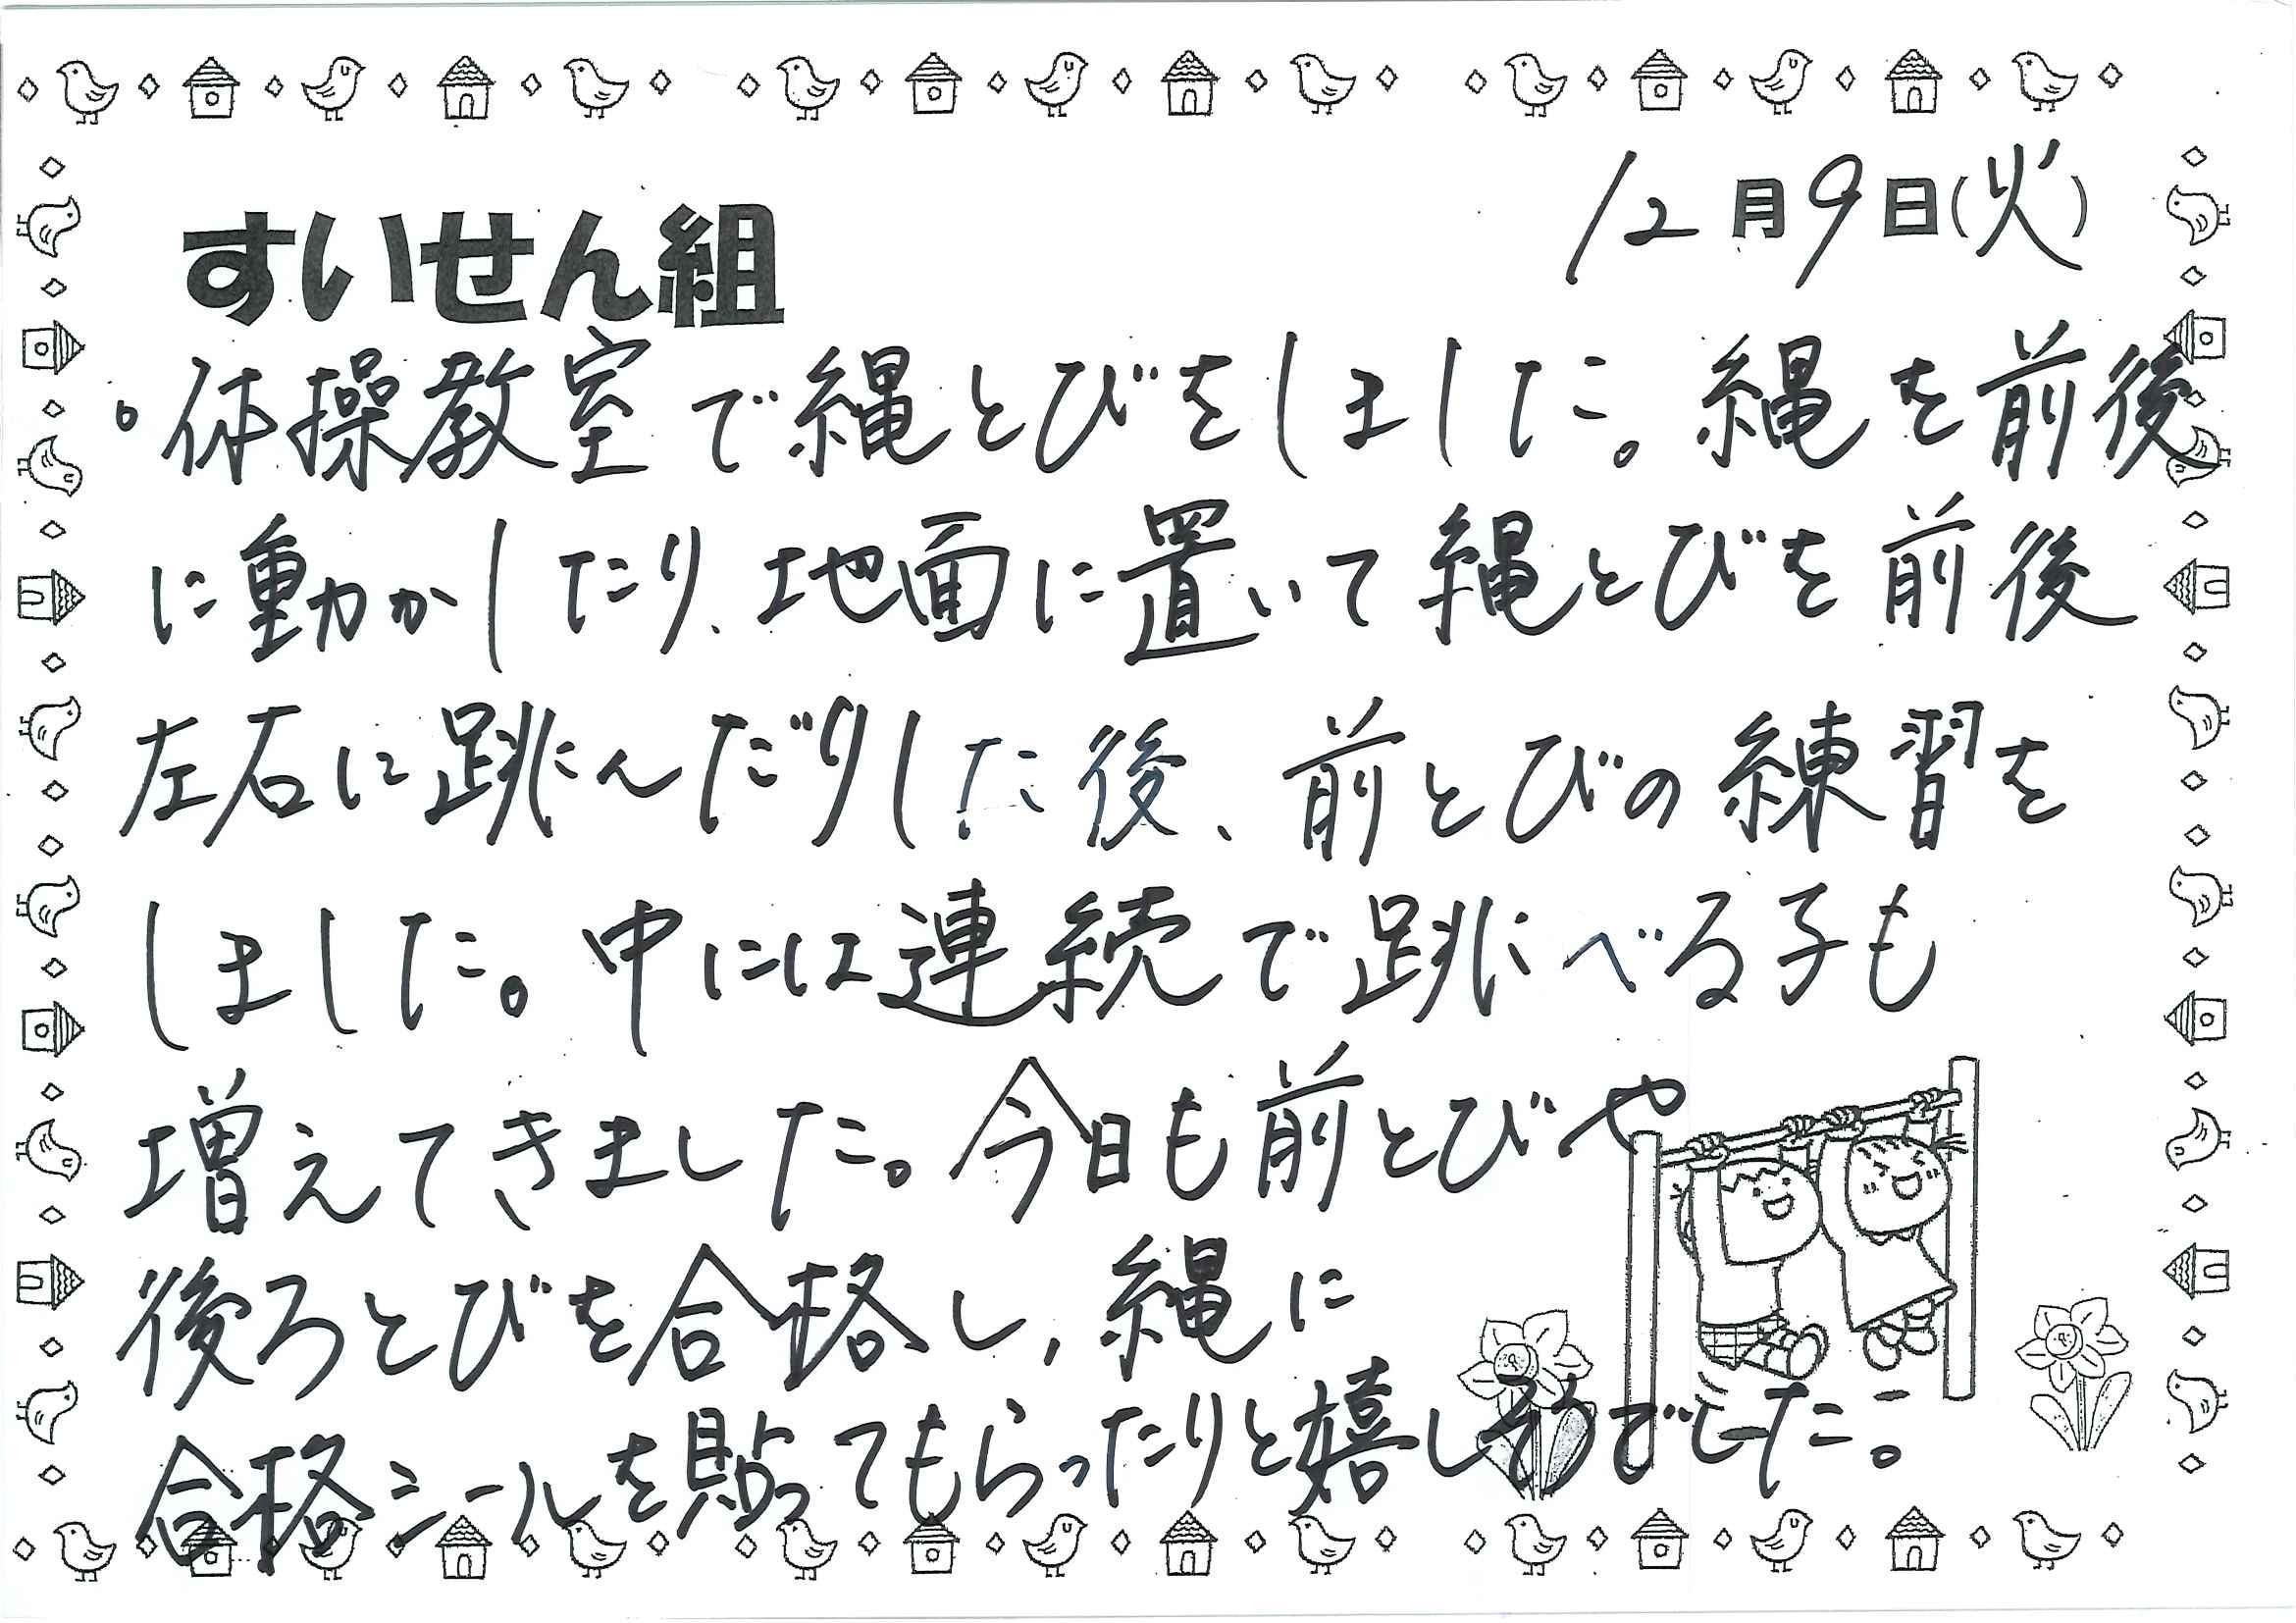 12月9日(火)
すいせん組
。体操教室で縄とびをしました。縄を前後
に動かしたり、地面に置いて縄とびを前後
左右に跳んだりした後、前とびの練習を
しました。中には連続で跳べる子も
増えてきました。今日も前とびや
後ろとびを合格し、縄に
合格シールを貼ってもらったりと嬉しそうでした。